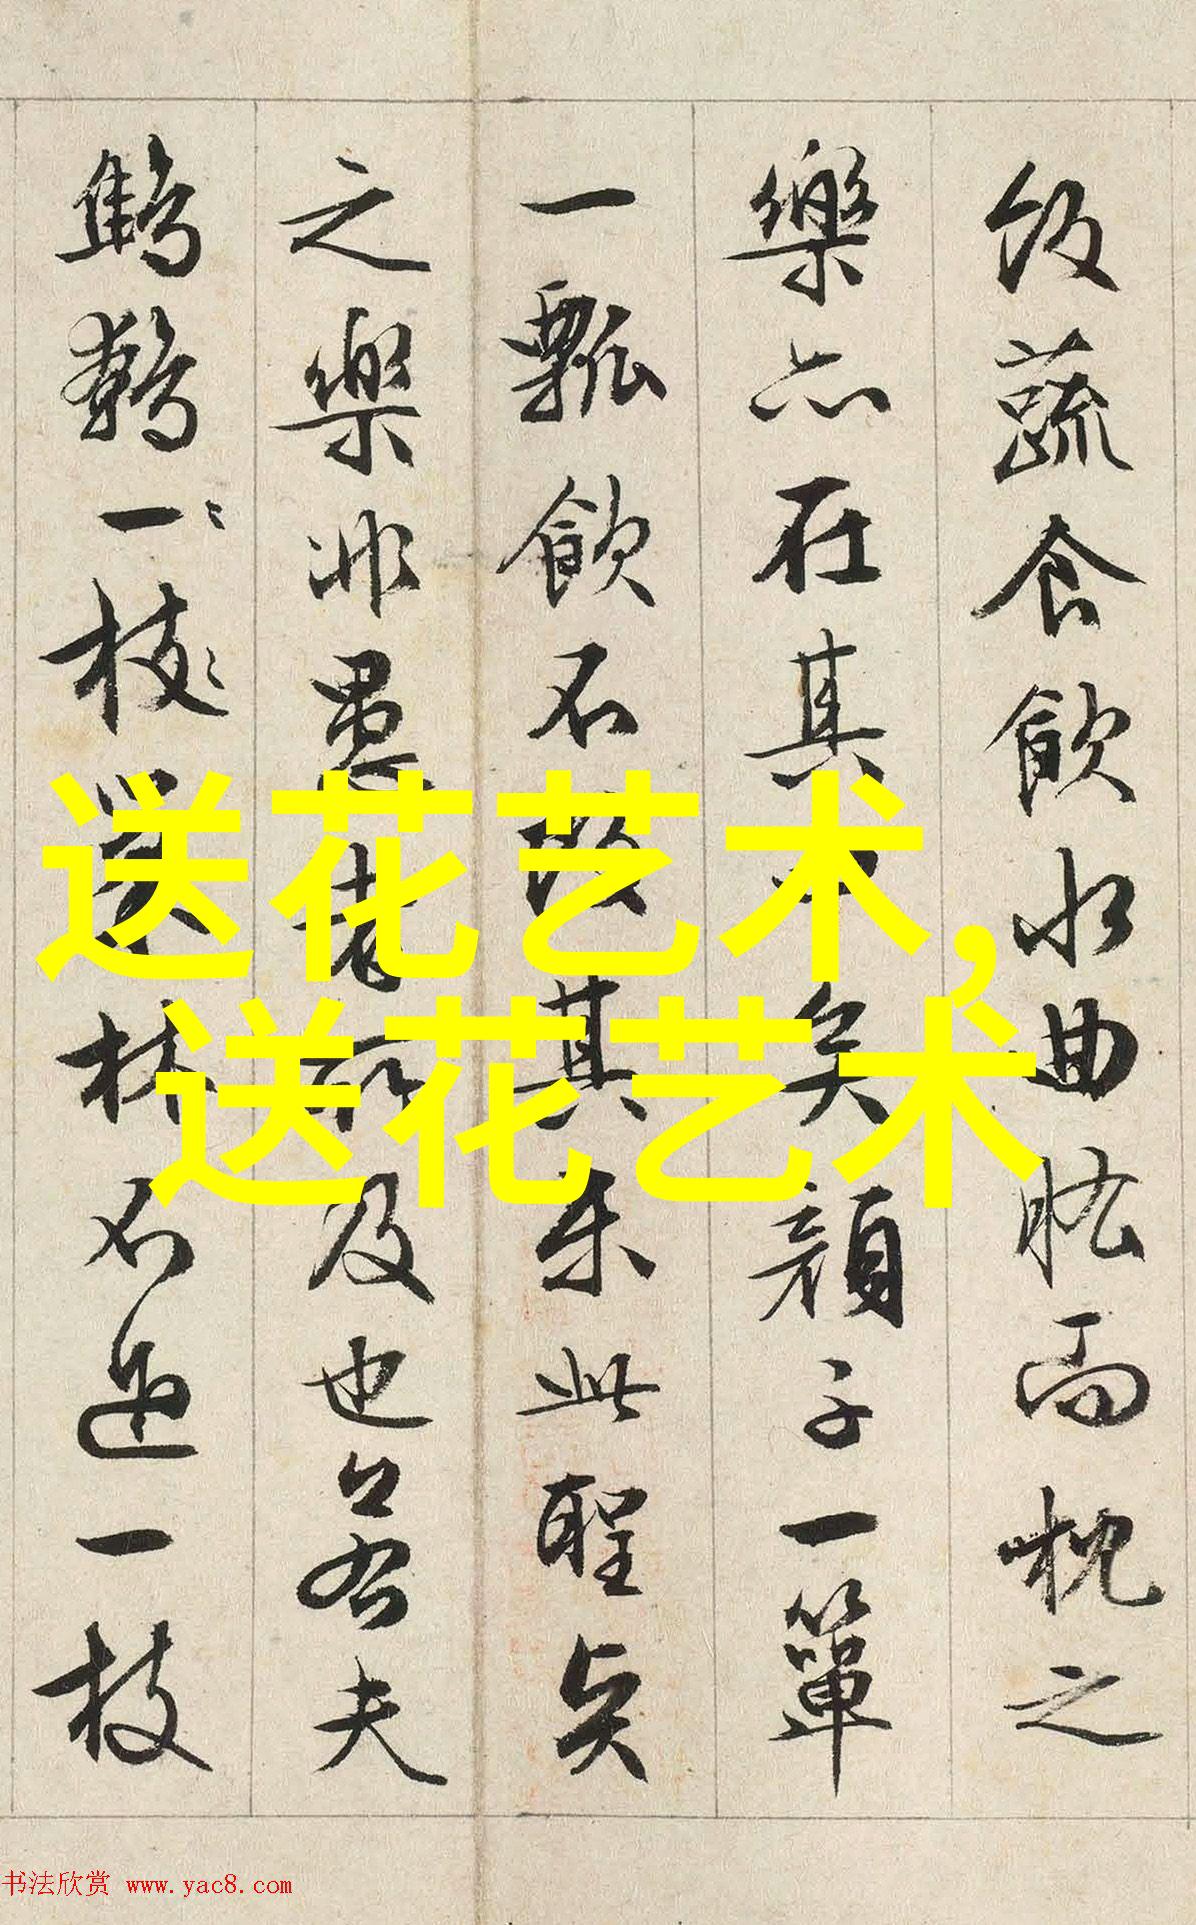 飯蔬食飲水曲肱而枕之
樂亦在其中矣顔子一簞
一瓢飲不改其樂此聖與
之樂非愚者所及也若夫
鷦鷯一〻枝〻巢林不過一枝
送花艺术,
送花艺术
书法欣赏 www.yac8.com